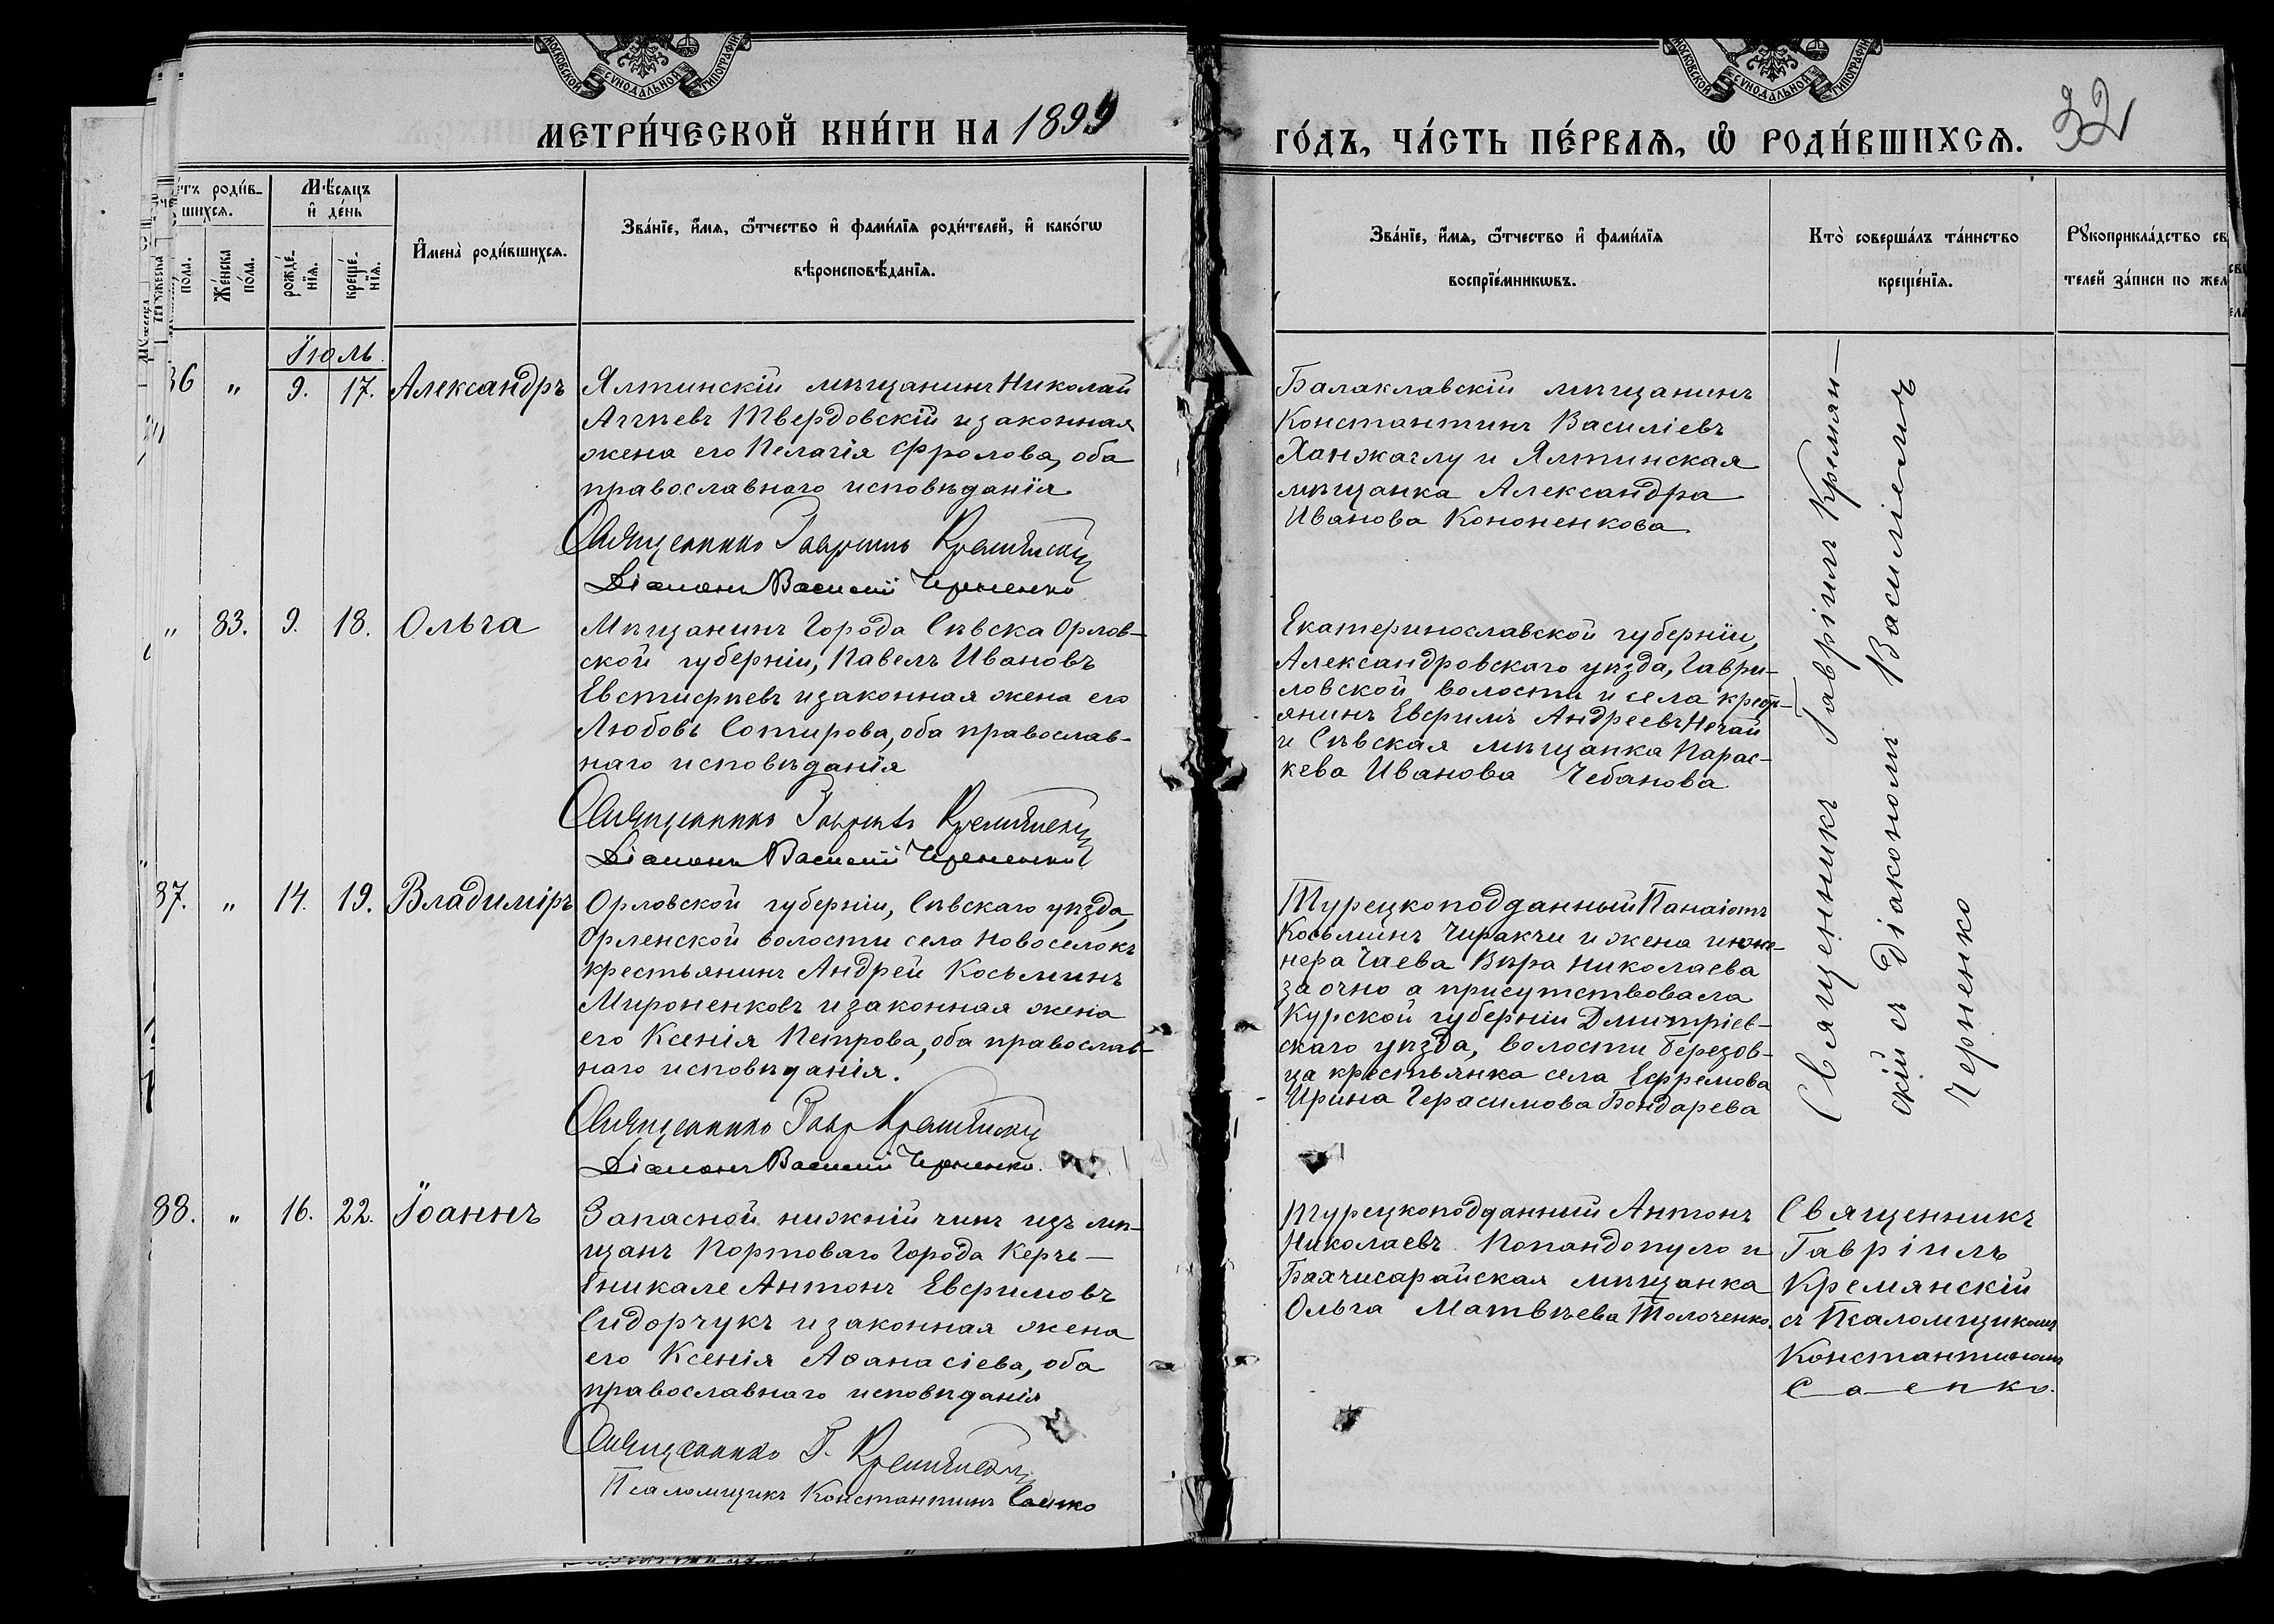 МОСКОВСКОЙ СѴНОДАЛЬНОЙ ТИПОГРАФІИ
МЕТРИ́ЧЕСКОЙ КНИ́ГИ НА 1899
МОСКОВСКОЙ СѴНОДАЛЬНОЙ ТИПОГРАФІИ
ГО́ДЪ, ЧА́СТЬ ПЕ́РВАѦ, Ѡ РОДИ́ВШИХСѦ.
32
родив-
шихся.
Мѣсяцъ
и день
пола.
Женска
пола.
рожде-
нія.
креще-
нія.
Имена родившихся.
Званіе, имя, отчество и фамилія родителей, и какогѡ
вѣроисповѣданія.
Званіе, имя, отчество и фамилія
воспріемникѡвъ.
Кто совершалъ таинство
крещенія.
Рукоприкладство св
телей записи по жел
Іюль
36 " 9. 17. Александръ
Ялтинскій мѣщанинъ Николай
Аггѣевъ Твердовскій и законная
жена его Пелагія Фролова, оба
православнаго исповѣданія
Священникъ Гавріилъ Кремянскій
Діаконъ Василій Черненко
Балаклавскій мѣщанинъ
Константинъ Василіевъ
Ханжаглу и Ялтинская
мѣщанка Александра
Иванова Кононенкова
Священникъ Гавріилъ Кремян-
скій съ діакономъ Василіемъ
Черненко
" 83. 9. 18. Ольга
Мѣщанинъ Города Сѣвска Орлов-
ской губерніи, Павелъ Ивановъ
Евстифѣевъ и законная жена его
Любовь Сотирова, оба православ-
наго исповѣданія
Священникъ Гавріилъ Кремянскій
Діаконъ Василій Черненко
Екатеринославской губерніи,
Александровскаго уѣзда, Гаври-
ловской волости и села кресть-
янинъ Евфимъ Андреевъ Нечай
и Сѣвская мѣщанка Парас-
кева Иванова Чебанова
37. " 14. 19. Владиміръ
Орловской губерніи, Сѣвскаго уѣзда,
Орленской волости села Новоселокъ
крестьянинъ Андрей Косьминъ
Мироненковъ и законная жена
его Ксенія Петрова, оба православ-
наго исповѣданія.
Священникъ Гавр Кремянскій
Діаконъ Василій Черненко.
Турецкоподданный Панаіотъ
Косьминъ Чиракчи и жена инже-
нера Чаева Вѣра Николаева
заочно а присутствовала
Курской губерніи Дмитріев-
скаго уѣзда, волости Березов-
ца крестьянка села Ефремова
Ирина Герасимова Бондарева
88. " 16. 22. Іоаннъ
Запасной нижній чинъ изъ мѣ-
щанъ Портоваго Города Керчь-
Еникале Антонъ Евфимовъ
Сидорчукъ и законная жена
его Ксенія Аѳанасіева, оба
православнаго исповѣданія
Священникъ Г. Кремянскій
Псаломщикъ Константинъ Саенко
Турецкоподданный Антонъ
Николаевъ Попандопуло и
Бахчисарайская мѣщанка
Ольга Матвѣева Толоченко.
Священникъ
Гавріилъ
Кремянскій
съ Псаломщикомъ
Константиномъ
Саенко.